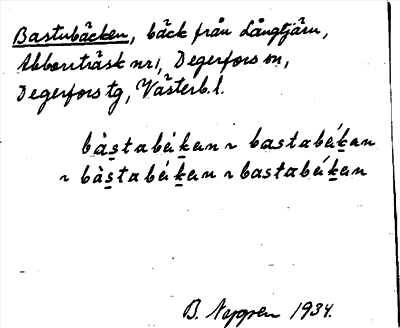 Bastubäcken, bäck från Långtjärn,
Abborrträsk nr 1, Degerfors sn,
Degerfors tg, Västerb. l.
bàs̱tabéḵan ~ bastabéḵan
~ bàs̱tabéḵan ~ bastabéḵan
B. 1934.